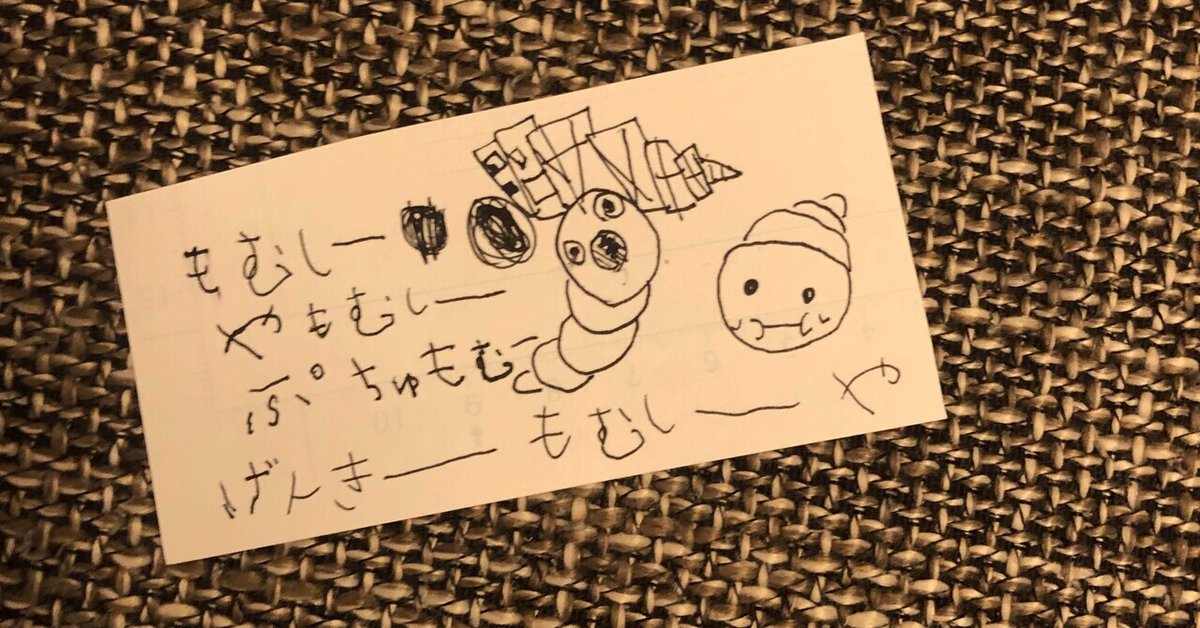 もむしー
やもむしー
ぷちゅもむ
げんきー もむしー や